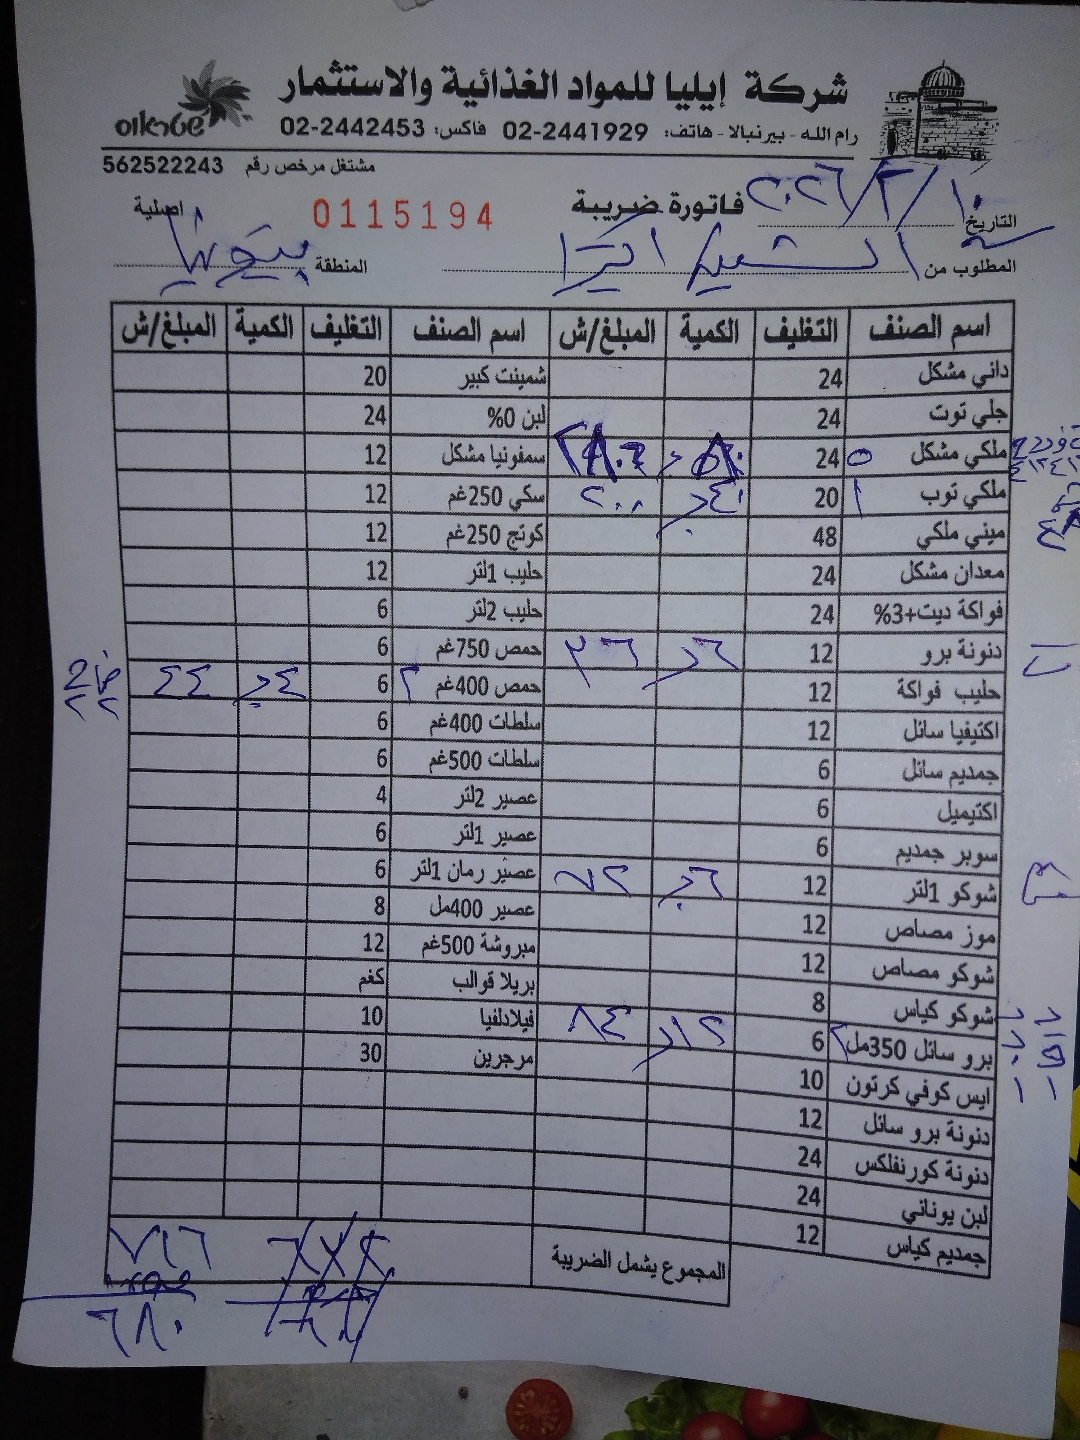 شركة إيليا للمواد الغذائية والاستثمار
رام الله - بيرنبالا - هاتف: 02-2441929 فاكس: 02-2442453
שטראוס
مشتغل مرخص رقم 562522243
التاريخ ٢٠٢٦/٢/١٠ فاتورة ضريبة 0115194 اصلية
المطلوب من المنطقة بيتونيا
اسم الصنف التغليف الكمية المبلغ/ش اسم الصنف التغليف الكمية المبلغ/ش
داني مشكل 24 شمينت كبير 20
جلي توت 24 لبن 0% 24
ملكي مشكل ٥ 24 سمفونيا مشكل 12
ملكي توب ١ 20 ٤٠ ٢٠٠ سكي 250غم 12
ميني ملكي 48 كوتج 250غم 12
معدان مشكل 24 حليب 1لتر 12
فواكة ديت+3% 24 حليب 2لتر 6
دنونة برو 12 ٦ ٣٦ حمص 750غم 6
حليب فواكة 12 حمص 400غم ٢ 6 ٤ ٤٤
اكتيفيا سائل 12 سلطات 400غم 6
جمديم سائل 6 سلطات 500غم 6
اكتيميل 6 عصير 2لتر 4
سوبر جمديم 6 عصير 1لتر 6
شوكو 1لتر 12 ٦ ٧٢ عصير رمان 1لتر 6
موز مصاص 12 عصير 400مل 8
شوكو مصاص 12 مبروشة 500غم 12
شوكو كياس 8 بريلا قوالب كغم
برو سائل 350مل ٢ 6 ١٢ ٨٤ فيلادلفيا 10
ايس كوفي كرتون 10 مرجرين 30
دنونة برو سائل 12
دنونة كورنفلكس 24
لبن يوناني 24
جمديم كياس 12
المجموع يشمل الضريبة ٧١٦
٦٨٠